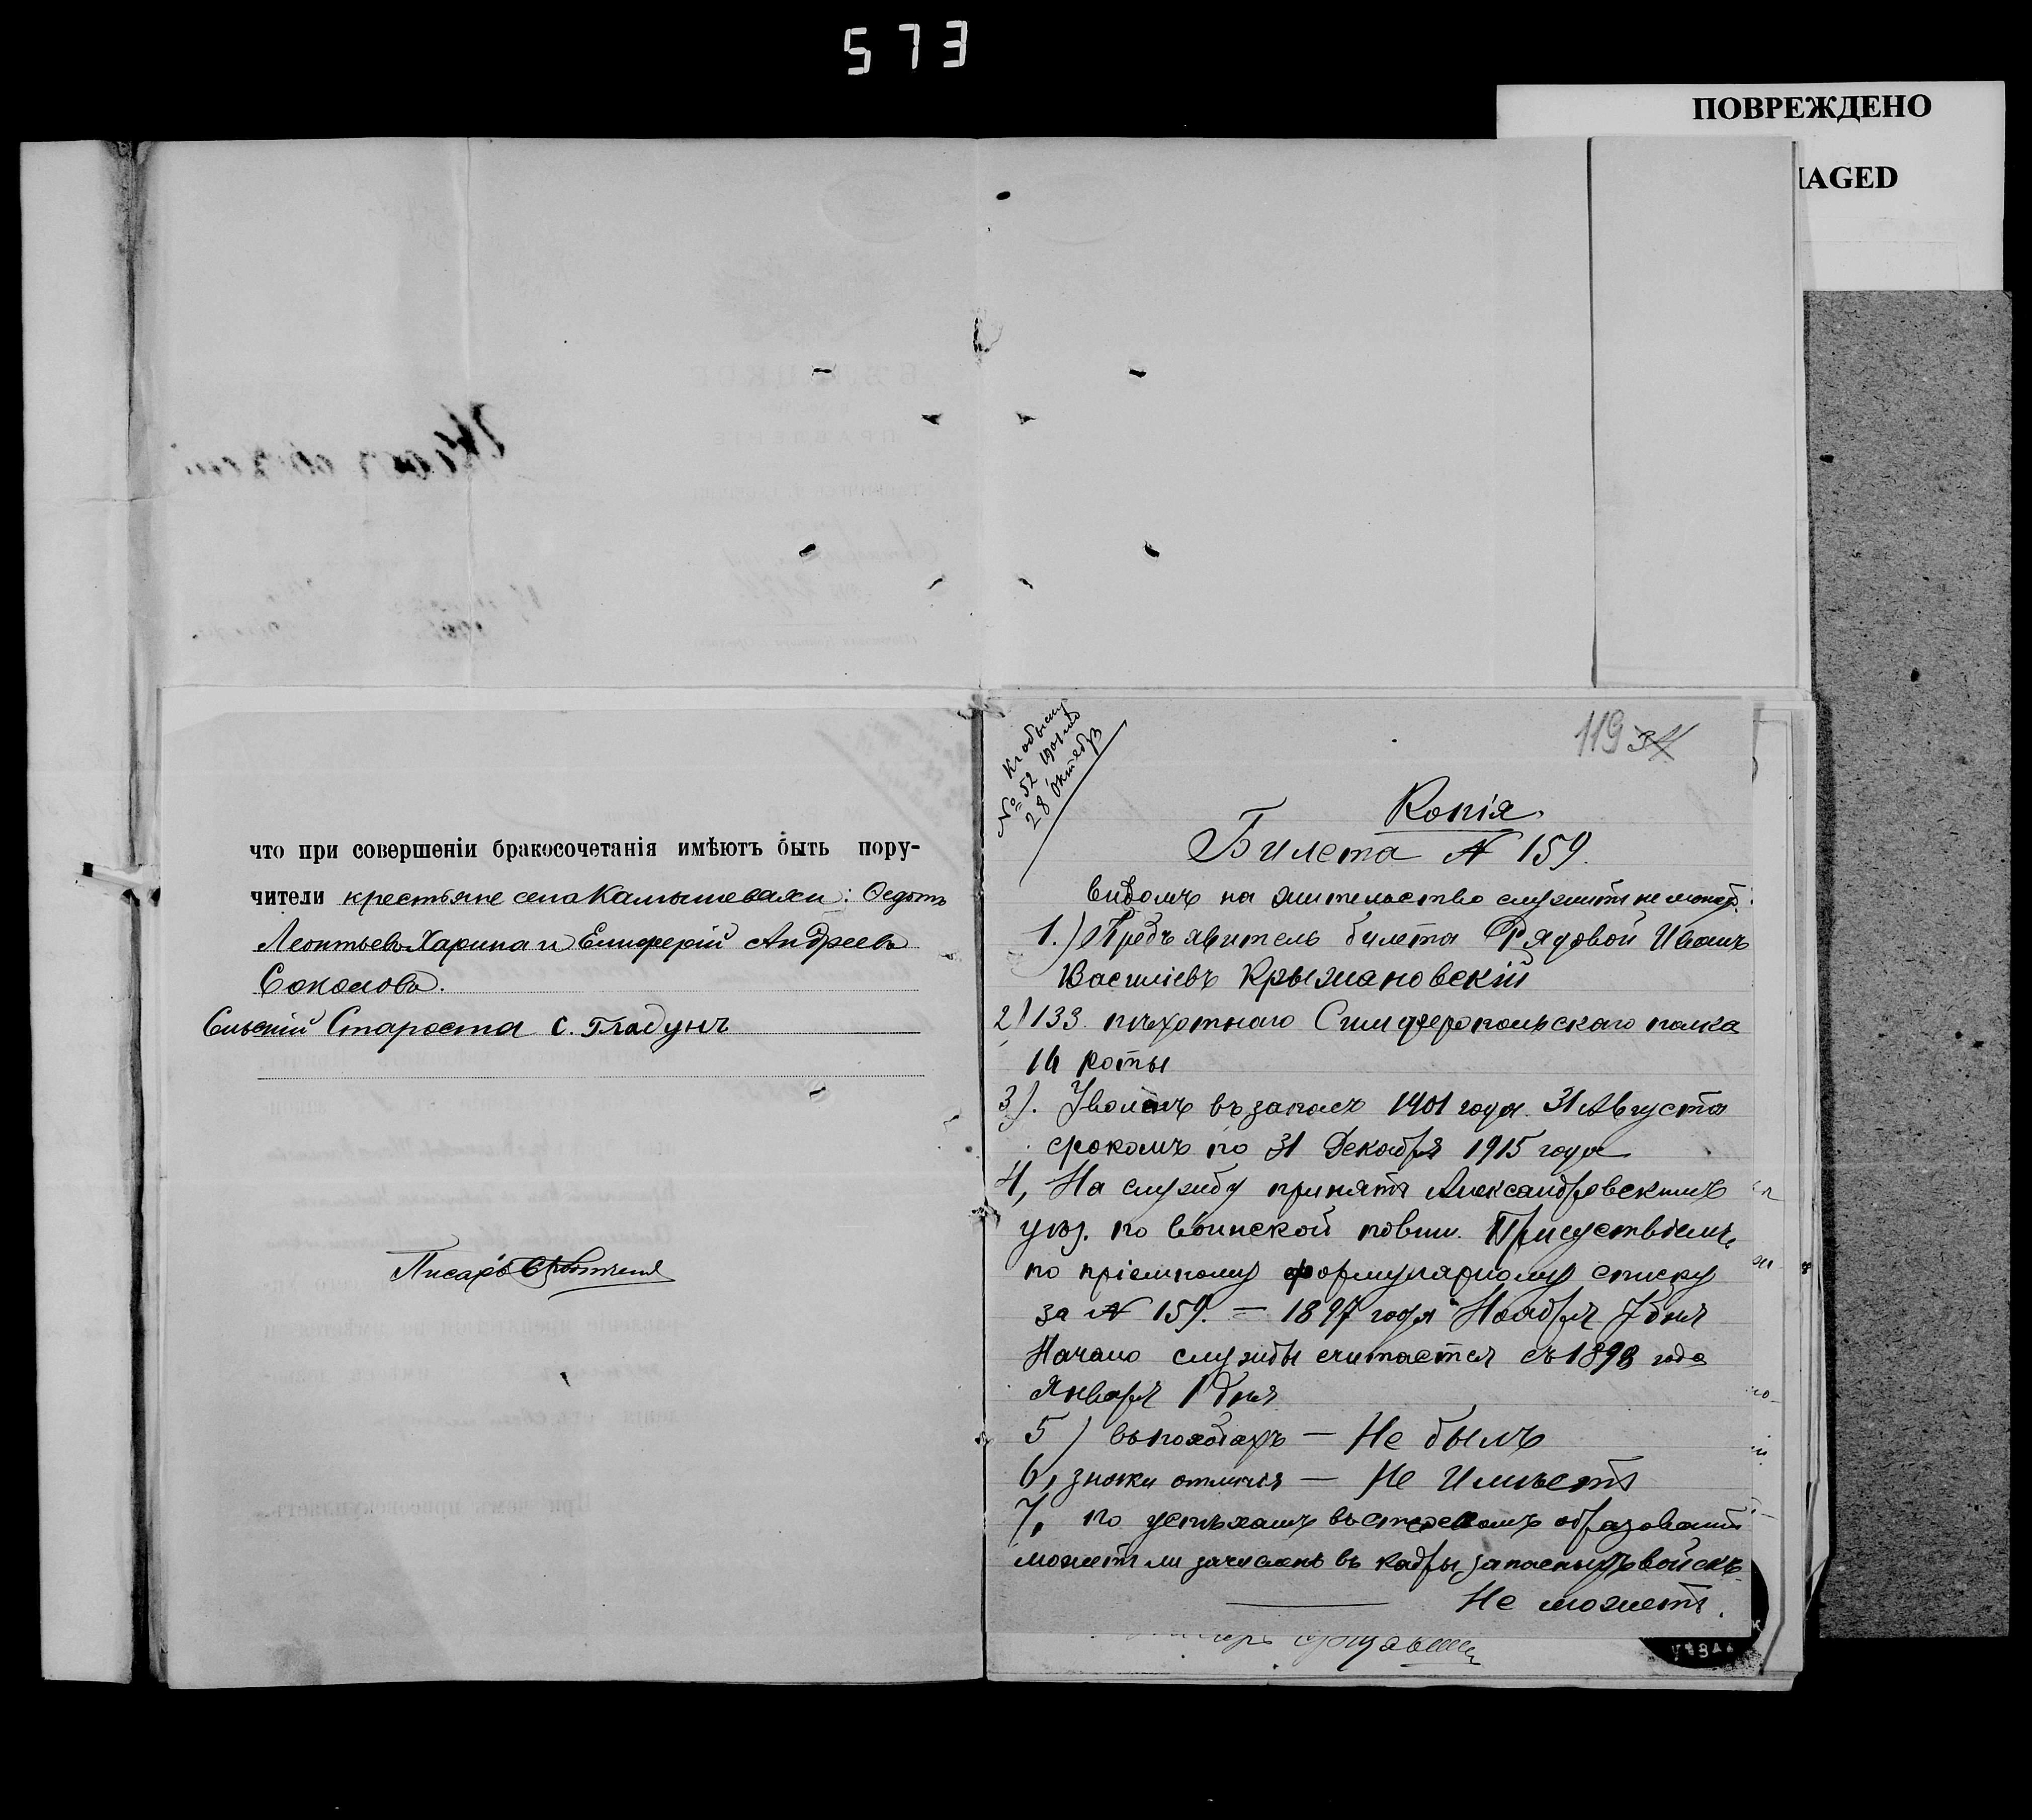 573
ПОВРЕЖДЕНО
MAGED
что при совершеніи бракосочетанія имѣютъ быть пору-
чители крестьяне села Камышевахи: Ѳедотъ
Леонтьевъ Харина и Елиферій Андреевъ
Соколовъ.
Сельскій Староста С. Гладунъ
Писарь
119
Къ обыску
№ 52 1901 го
28 Октября
Копія
Билета № 159.
видомъ на жительство служить не можетъ.
1.) Предъявитель билета Рядовой Иванъ
Василіевъ Крыжановскій
2) 133 пѣхотнаго Симферопольскаго полка
16 роты
3). Уволенъ въ запасъ 1901 года 31 Августа
срокомъ по 31 Декабря 1915 года
4, На службу принятъ Александровскимъ
уѣз. по воинской повин. Присуствіемъ
по пріемному формулярному списку
за № 159. – 1897 года Ноября 7 дня
Начало службы считается съ 1898 года
Января 1 дня
5) въ походахъ — Не былъ
6, знаки отличія — Не Имѣетъ
7, по успѣхамъ въ строевомъ образованіи
можетъ ли зачисленъ въ кадры запасныхъ войскъ
Не можетъ.